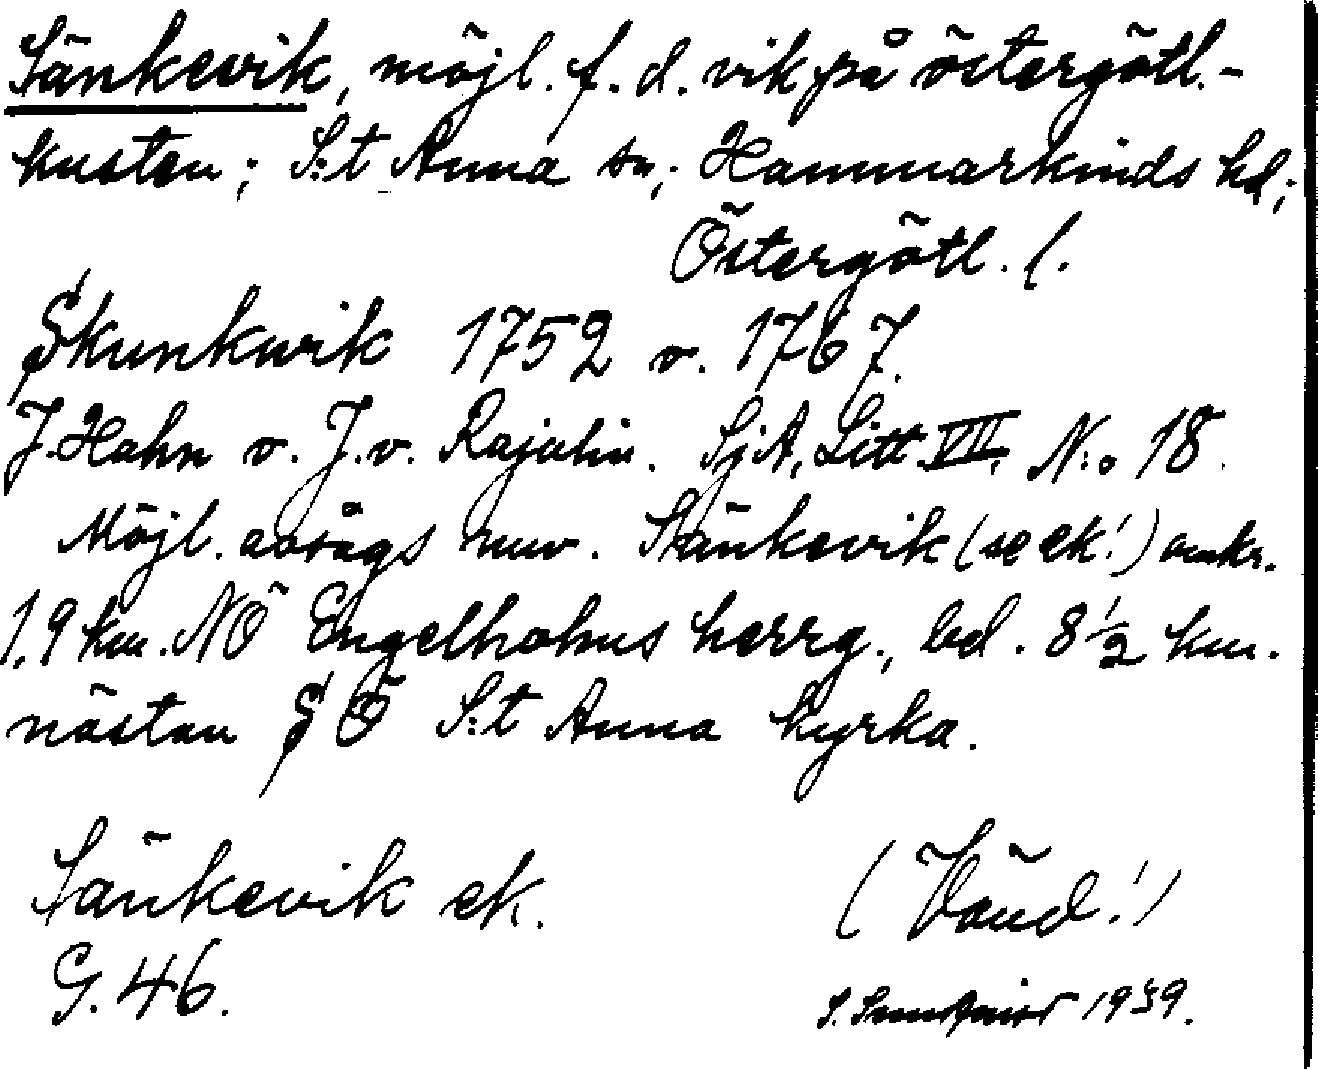 Sänkevik, möjl. f. d. vik på östergötl.-
kusten; S:t Anna sn; Hammarkinds hd;
Östergötl. l.
Skunkwik 1752 o. 1767.
J. Hahn o. J. v. Rajalin. SjA, Litt. VII, N:o 18.
Möjl. avsågs nuv. Sänkevik (se ek!) omkr.
1,9 km. NÖ Engelholms herrg., bel. 8 1/2 km.
nästan SÖ S:t Anna kyrka.
Sänkevik ek.
G. 46.
(Vänd!)
S. 1939.